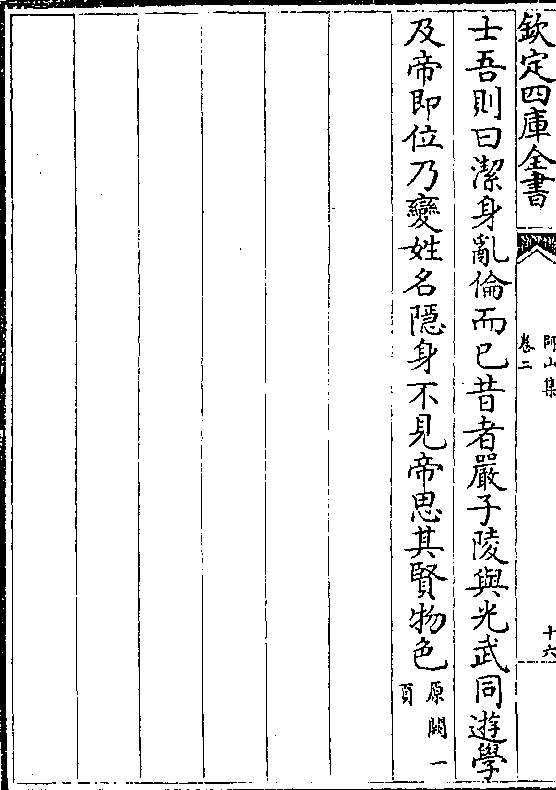 欽定四庫全書
師山集
卷二
十六
士吾則曰潔身亂倫而已昔者嚴子陵與光武同遊學
及帝即位乃變姓名隱身不見帝思其賢物色
原闕一
頁